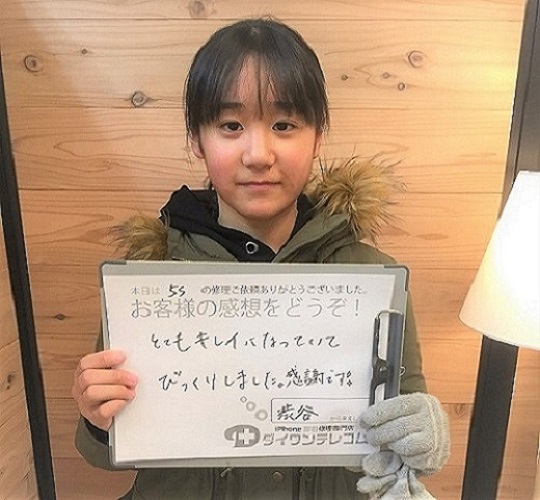 本日は 5S の修理ご依頼ありがとうございました。
お客様の感想をどうぞ！
とてもキレイになっていて
びっくりしました。感謝です。
渋谷
iPhone 修理専門店
ダイワンテレコム